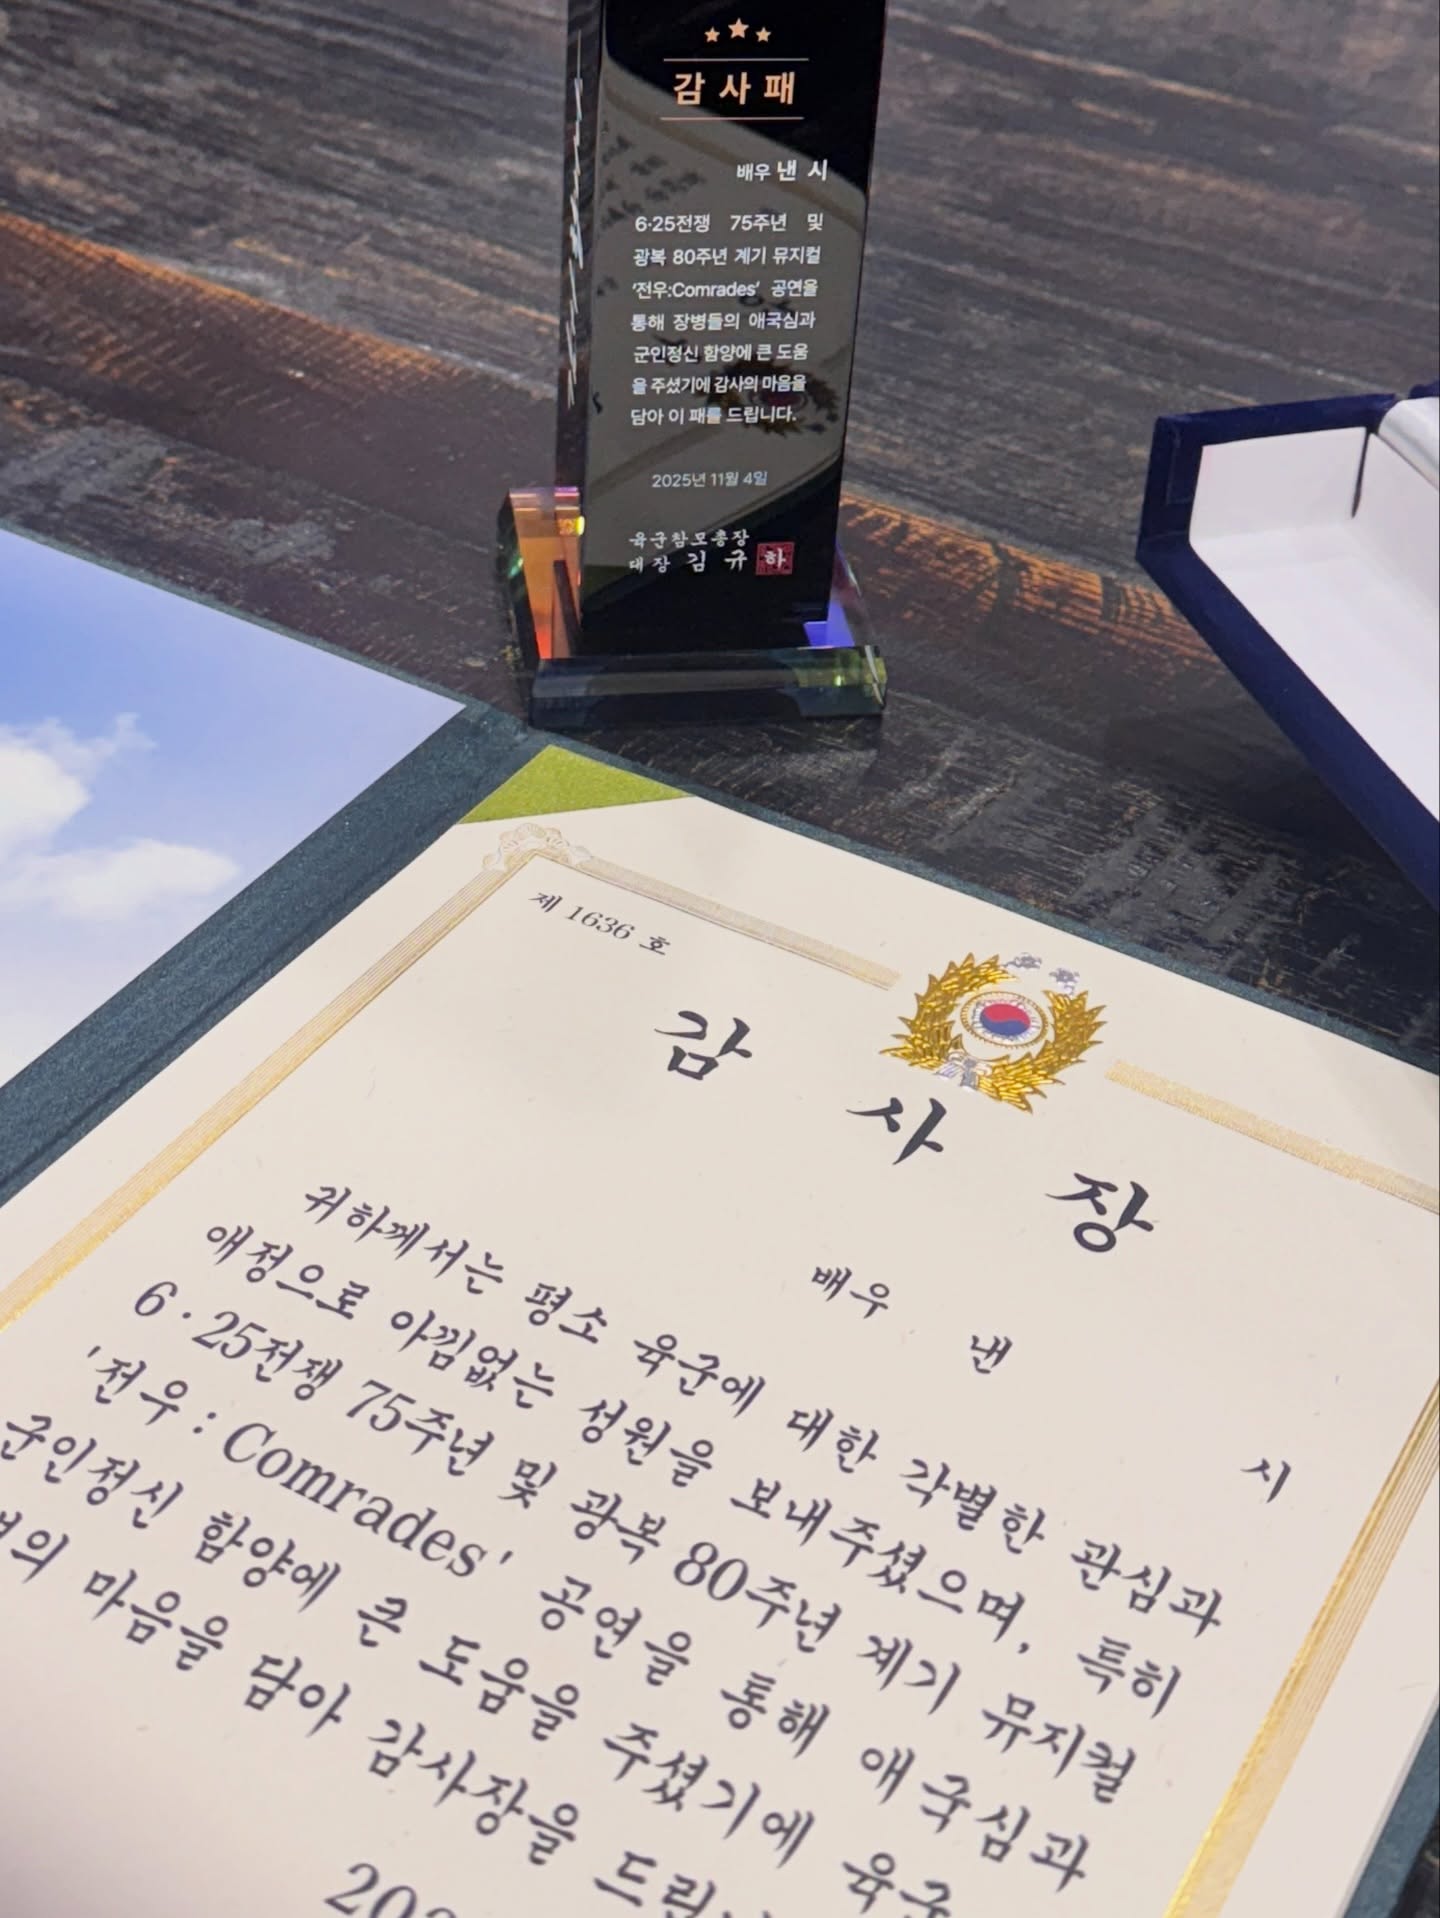 감사패
배우 낸 시
6·25전쟁 75주년 및
광복 80주년 계기 뮤지컬
'전우:Comrades' 공연을
통해 장병들의 애국심과
군인정신 함양에 큰 도움
을 주셨기에 감사의 마음을
담아 이 패를 드립니다.
2025년 11월 4일
육군참모총장
대장 김 규 하
제 1636 호
감 사 장
배우 낸 시
귀하께서는 평소 육군에 대한 각별한 관심과
애정으로 아낌없는 성원을 보내주셨으며, 특히
6·25전쟁 75주년 및 광복 80주년 계기 뮤지컬
'전우 : Comrades' 공연을 통해 애국심과
군인정신 함양에 큰 도움을 주셨기에
마음을 담아 감사장을